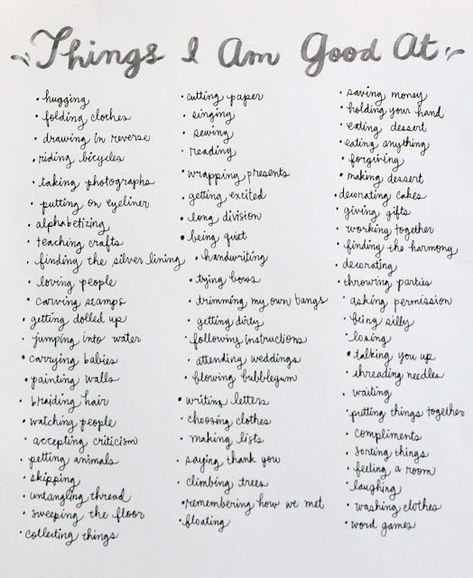 Things I Am Good At
• hugging
• folding clothes
• drawing in reverse
• riding bicycles
• taking photographs
• putting on eyeliner
• alphabetizing
• teaching crafts
• finding the silver lining
• loving people
• carving stamps
• getting dolled up
• jumping into water
• carrying babies
• painting walls
• braiding hair
• watching people
• accepting criticism
• petting animals
• skipping
• untangling thread
• sweeping the floor
• collecting things
• cutting paper
• singing
• sewing
• reading
• wrapping presents
• getting excited
• long division
• being quiet
• handwriting
• tying bows
• trimming my own bangs
• getting dirty
• following instructions
• attending weddings
• blowing bubblegum
• writing letters
• choosing clothes
• making lists
• saying thank you
• climbing trees
• remembering how we met
• floating
• saving money
• holding your hand
• eating dessert
• eating anything
• forgiving
• making dessert
• decorating cakes
• giving gifts
• working together
• finding the harmony
• decorating
• throwing parties
• asking permission
• being silly
• losing
• talking you up
• threading needles
• waiting
• putting things together
• compliments
• sorting things
• feeling a room
• laughing
• washing clothes
• word games